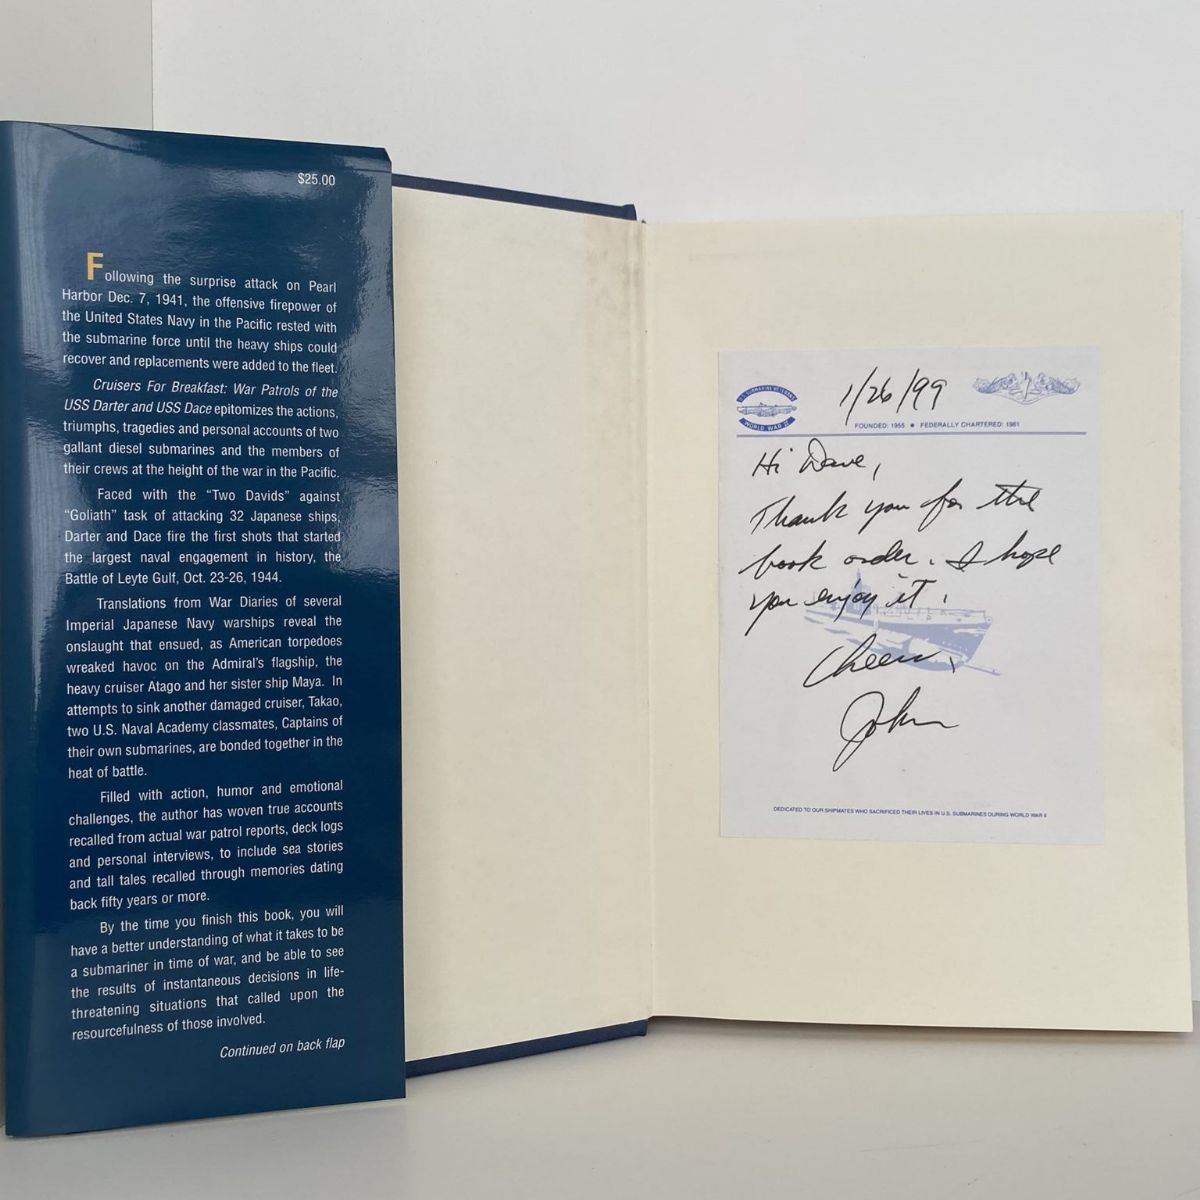 $25.00
Following the surprise attack on Pearl
Harbor Dec. 7, 1941, the offensive firepower of
the United States Navy in the Pacific rested with
the submarine force until the heavy ships could
recover and replacements were added to the fleet.
Cruisers For Breakfast: War Patrols of the
USS Darter and USS Dace epitomizes the actions,
triumphs, tragedies and personal accounts of two
gallant diesel submarines and the members of
their crews at the height of the war in the Pacific.
Faced with the “Two Davids” against
“Goliath” task of attacking 32 Japanese ships,
Darter and Dace fire the first shots that started
the largest naval engagement in history, the
Battle of Leyte Gulf, Oct. 23-26, 1944.
Translations from War Diaries of several
Imperial Japanese Navy warships reveal the
onslaught that ensued, as American torpedoes
wreaked havoc on the Admiral's flagship, the
heavy cruiser Atago and her sister ship Maya. In
attempts to sink another damaged cruiser, Takao,
two U.S. Naval Academy classmates, Captains of
their own submarines, are bonded together in the
heat of battle.
Filled with action, humor and emotional
challenges, the author has woven true accounts
recalled from actual war patrol reports, deck logs
and personal interviews, to include sea stories
and tall tales recalled through memories dating
back fifty years or more.
By the time you finish this book, you will
have a better understanding of what it takes to be
a submariner in time of war, and be able to see
the results of instantaneous decisions in life-
threatening situations that called upon the
resourcefulness of those involved.
Continued on back flap
U.S. SUBMARINE VETERANS
WORLD WAR II
1/26/99
FOUNDED: 1955 ● FEDERALLY CHARTERED: 1981
Hi Dave,
Thank you for the
book order. I hope
you enjoy it.
Cheers,
John
DEDICATED TO OUR SHIPMATES WHO SACRIFICED THEIR LIVES IN U.S. SUBMARINES DURING WORLD WAR II